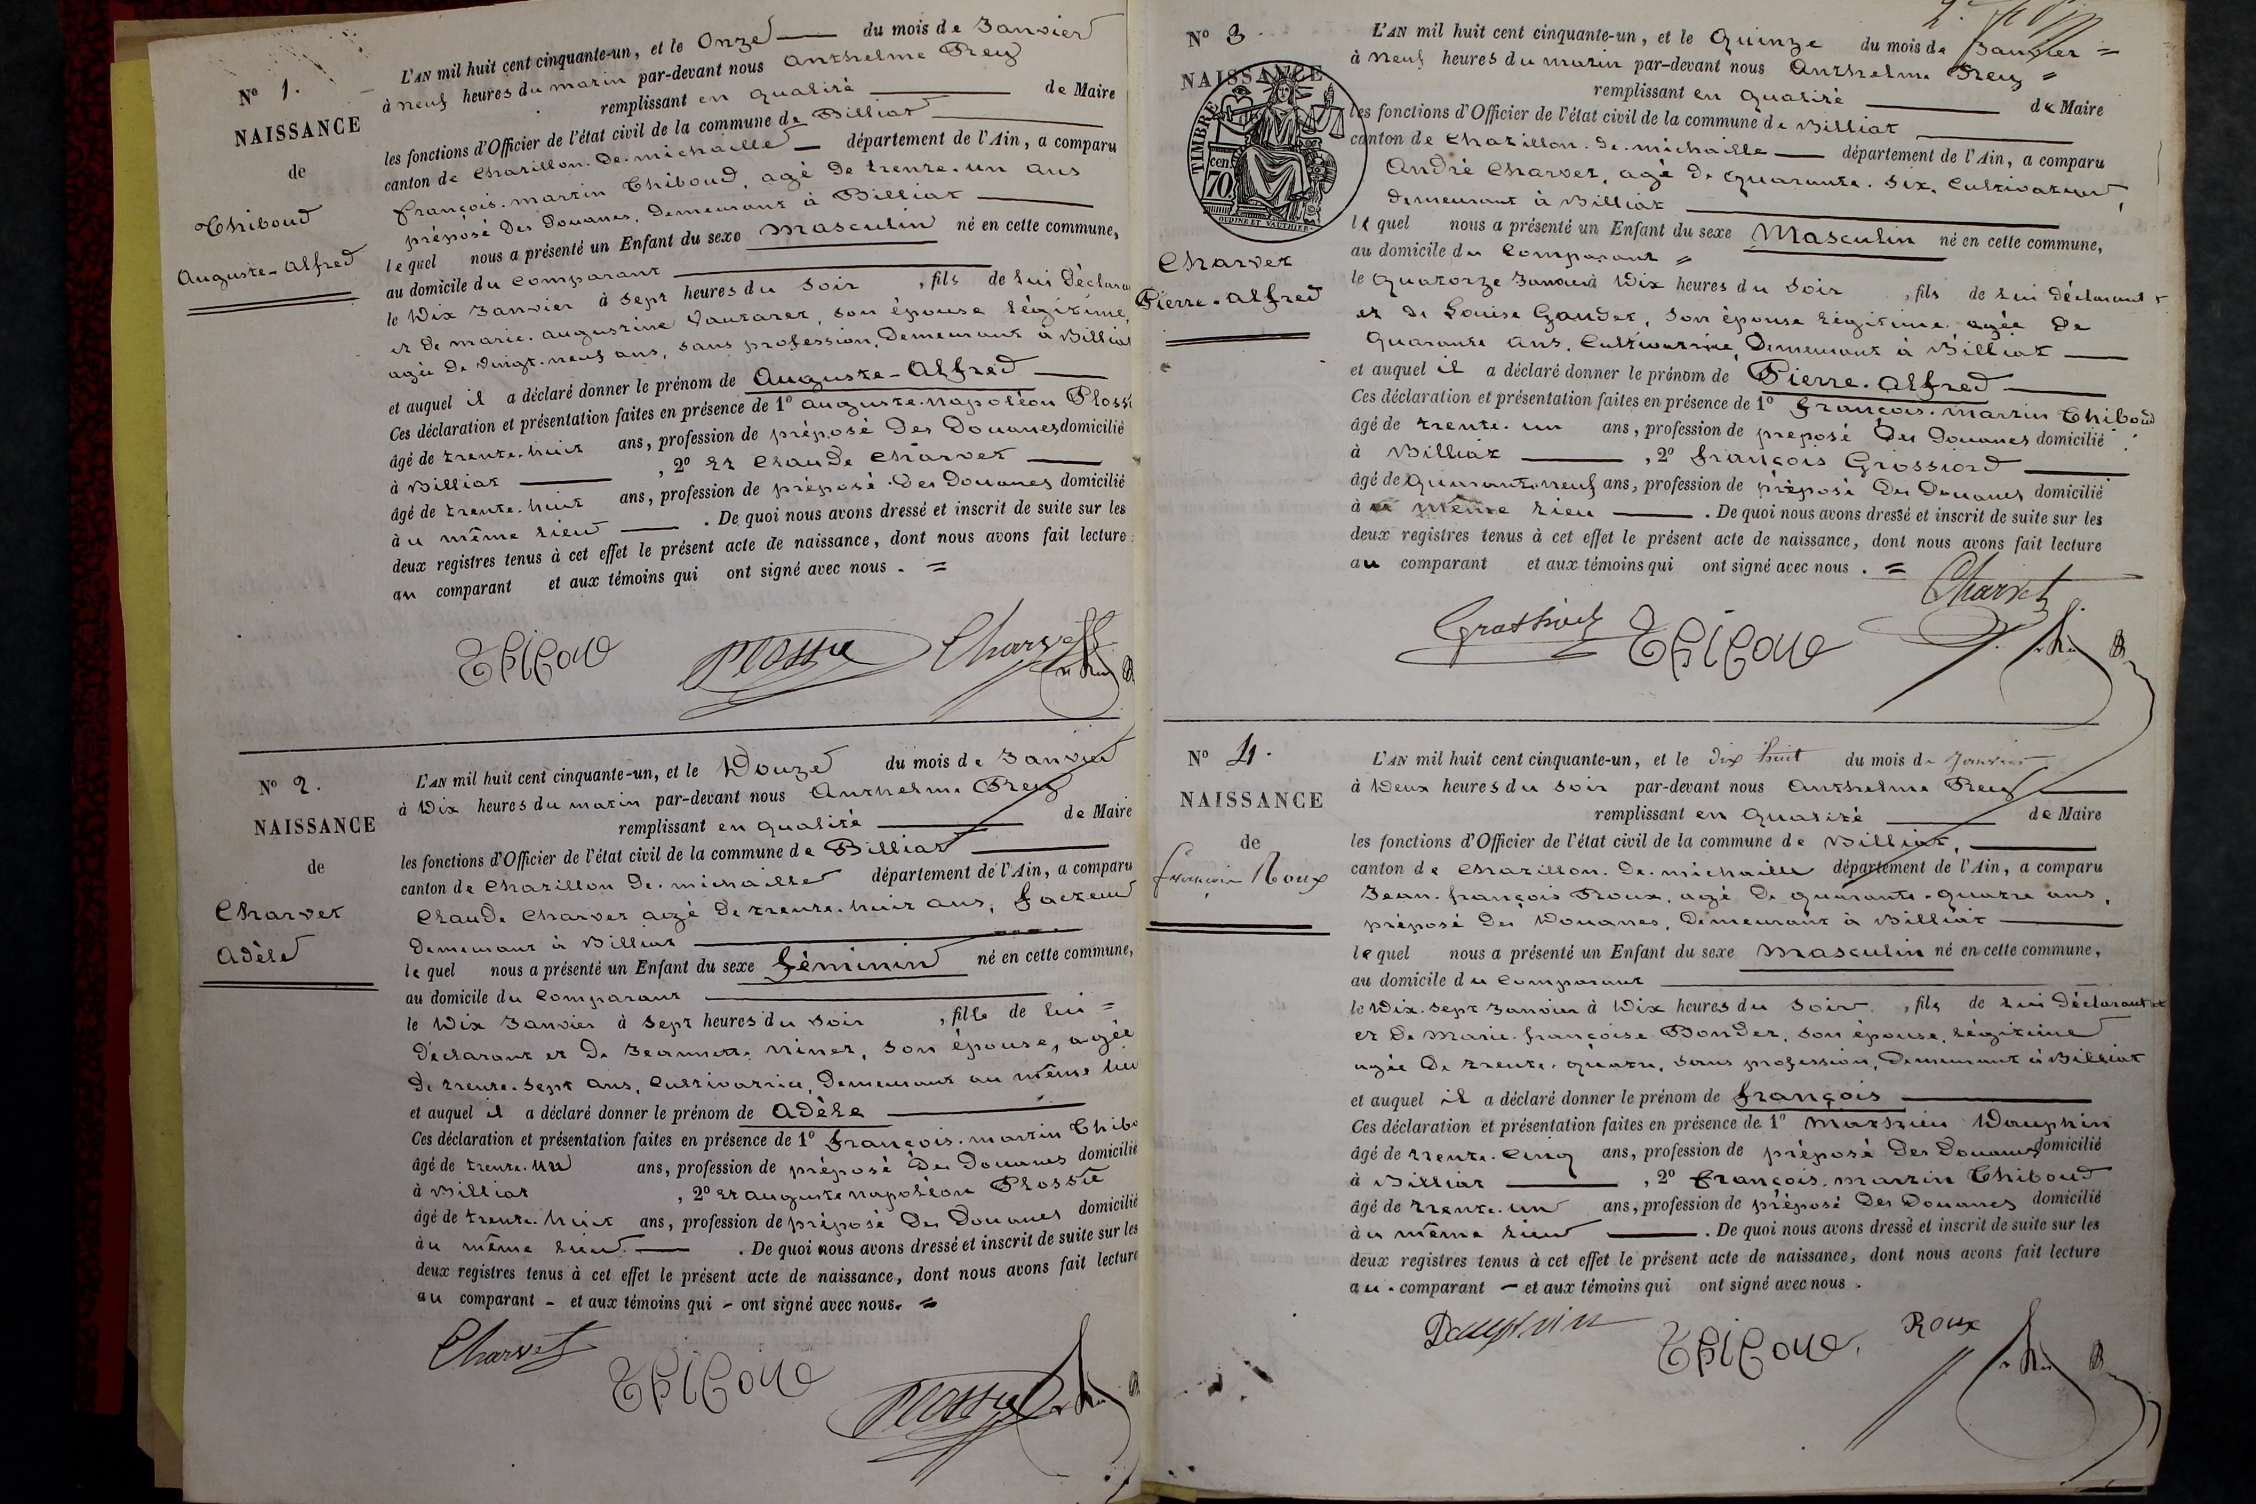 N° 1.
NAISSANCE
de
Thiboud
Auguste-Alfred
L'AN mil huit cent cinquante-un, et le Onze du mois de Janvier
à neuf heures du matin par-devant nous Anthelme Rey
remplissant en qualité de Maire
les fonctions d'Officier de l'état civil de la commune de Billiat
canton de Chatillon. de. michaille département de l'Ain, a comparu
françois. martin Thiboud, agé de trente. un ans
préposé des Douanes, demeurant à Billiat
lequel nous a présenté un Enfant du sexe Masculin né en cette commune,
au domicile du Comparant
le Dix Janvier à sept heures du soir , fils de lui Déclarant
et de marie. augustine Vautaret, son épouse légitime,
agée de vingt. neuf ans, sans profession, Demeurant à Billiat
et auquel il a déclaré donner le prénom de Auguste-Alfred
Ces déclaration et présentation faites en présence de 1° auguste. napoléon Plossu
âgé de trente. huit ans, profession de préposé Des Douanes domicilié
à Billiat , 2° Et Claude Charvet
âgé de trente. huit ans, profession de préposé. Des Douanes domicilié
à u même lieu . De quoi nous avons dressé et inscrit de suite sur les
deux registres tenus à cet effet le présent acte de naissance, dont nous avons fait lecture
au comparant et aux témoins qui ont signé avec nous. =
Thiboud Plossu Charvet
N° 2.
NAISSANCE
de
Charvet
Adèle
L'AN mil huit cent cinquante-un, et le Douze du mois de Janvier
à Dix heures du matin par-devant nous Anthelme Rey
remplissant en qualité de Maire
les fonctions d'Officier de l'état civil de la commune de Billiat
canton de Chatillon de. michaille département de l'Ain, a comparu
Claude Charvet agé de trente. huit ans, facteur
demeurant à Billiat
lequel nous a présenté un Enfant du sexe féminin né en cette commune,
au domicile du Comparant
le Dix Janvier à sept heures du soir , fille de lui =
déclarant et de Jeannette ninet, son épouse, agée
de trente. sept ans, Cultivatrice, Demeurant au même lieu
et auquel il a déclaré donner le prénom de Adèle
Ces déclaration et présentation faites en présence de 1° françois. martin Thibo
âgé de trente. un ans, profession de préposé Des Douanes domicilié
à Billiat , 2° Et auguste napoléon Plossu
âgé de trente. huit ans, profession de préposé Des Douanes domicilié
àu même lieu. . De quoi nous avons dressé et inscrit de suite sur les
deux registres tenus à cet effet le présent acte de naissance, dont nous avons fait lecture
au comparant - et aux témoins qui - ont signé avec nous. =
Charvet Thiboud Plossu
N° 3.
NAISSANCE
TIMBRE
70 cen
OUDINE ET VAUTHIER
Charvet
Pierre-Alfred
L'AN mil huit cent cinquante-un, et le Quinze du mois de Janvier =
à neuf heures du matin par-devant nous Anthelme Rey =
remplissant en qualité de Maire
les fonctions d'Officier de l'état civil de la commune de Billiat
canton de Chatillon. de. michaille département de l'Ain, a comparu
André Charvet, agé de quarante. six, Cultivateur,
demeurant à Billiat
lequel nous a présenté un Enfant du sexe Masculin né en cette commune,
au domicile du Comparant =
le quatorze Janvier à Dix heures du soir , fils de lui déclarant
et de Louise Gaudet, son épouse légitime, agée de
quarante ans, Cultivatrice, Demeurant à Billiat
et auquel il a déclaré donner le prénom de Pierre. Alfred
Ces déclaration et présentation faites en présence de 1° françois. martin Thiboud
âgé de trente. un ans, profession de préposé Des Douanes domicilié
à Billiat , 2° françois Grossiord
âgé de quarante. neuf ans, profession de préposé Des Douanes domicilié
à u même lieu . De quoi nous avons dressé et inscrit de suite sur les
deux registres tenus à cet effet le présent acte de naissance, dont nous avons fait lecture
au comparant et aux témoins qui ont signé avec nous. =
Charvet
Grossiord Thiboud
N° 4.
NAISSANCE
de
françois Roux
L'AN mil huit cent cinquante-un, et le dix huit du mois de Janvier
à Deux heures du soir par-devant nous Anthelme Rey
remplissant en qualité de Maire
les fonctions d'Officier de l'état civil de la commune de Billiat,
canton de Chatillon. De. michaille département de l'Ain, a comparu
Jean. françois Roux, agé de quarante-quatre ans,
préposé des Douanes, Demeurant à Billiat
lequel nous a présenté un Enfant du sexe Masculin né en cette commune,
au domicile du Comparant
le Dix. sept Janvier à Dix heures du soir , fils de lui Déclarant
et de Marie. françoise Bonder, son épouse, légitime
agée de trente. quatre, sans profession, Demeurant à Billiat
et auquel il a déclaré donner le prénom de françois
Ces déclaration et présentation faites en présence de 1° Mathieu Dauphin
âgé de trente. cinq ans, profession de préposé Des Douanes domicilié
à Billiat , 2° françois. martin Thiboud
âgé de trente. un ans, profession de préposé Des Douanes domicilié
àu même lieu . De quoi nous avons dressé et inscrit de suite sur les
deux registres tenus à cet effet le présent acte de naissance, dont nous avons fait lecture
au. comparant - et aux témoins qui ont signé avec nous.
Dauphin Thiboud. Roux